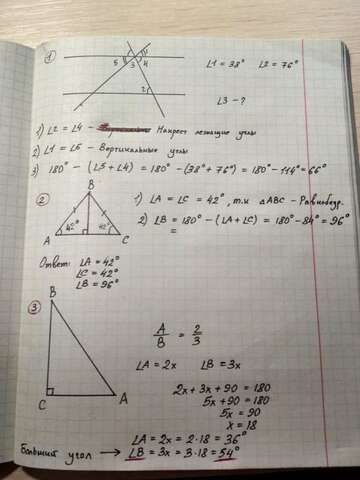 1
5 3 4
2
1
∠1 = 38° ∠2 = 76°
∠3 - ?
1) ∠2 = ∠4 - Накрест лежащие углы
2) ∠1 = ∠5 - Вертикальные углы
3) 180° - (∠5 + ∠4) = 180° - (38° + 76°) = 180° - 114° = 66°
2
B
A 42° 42° C
1) ∠A = ∠C = 42°, т.к △ABC - Равнобедр.
2) ∠B = 180° - (∠A + ∠C) = 180° - 84° = 96°
=
Ответ: ∠A = 42°
∠C = 42°
∠B = 96°
3
B
C A
A/B = 2/3
∠A = 2x ∠B = 3x
2x + 3x + 90 = 180
5x + 90 = 180
5x = 90
x = 18
∠A = 2x = 2·18 = 36°
Больший угол → ∠B = 3x = 3·18 = 54°